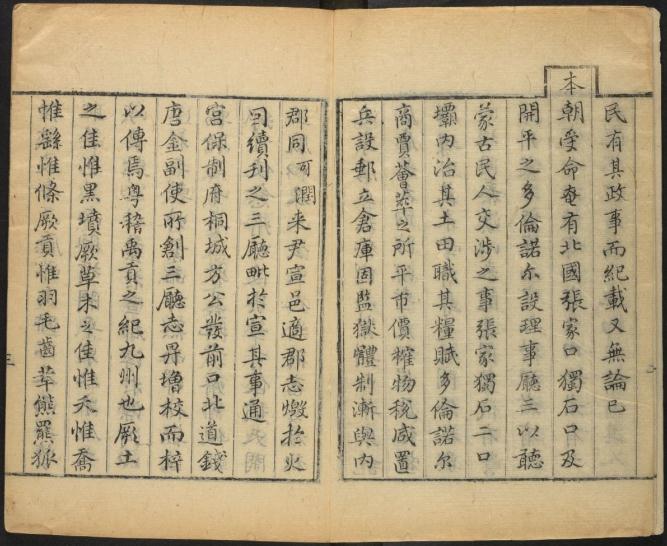 民有其政事而紀載又無論已
本朝受命奄有北國張家口獨石口及
開平之多倫諾尔設理事廳三以聽
蒙古民人交涉之事張家獨石二口
壩內治其土田職其糧賦多倫諾尔
商賈薈萃之所平市價榷物稅咸置
兵設郵立倉庫固監獄體制漸與內
郡同可潤来尹宣邑適郡志燬扵火
囙續刋之三廳毗扵宣其事通
宮保制府桐城方公發前口北道錢
唐金副使所創三廳志畀増校而梓
以傳焉粤稽禹貢之紀九州也厥土
之佳惟黑墳厥草木之佳惟夭惟喬
惟繇惟條厥貢惟羽毛齒革熊羆狐
三